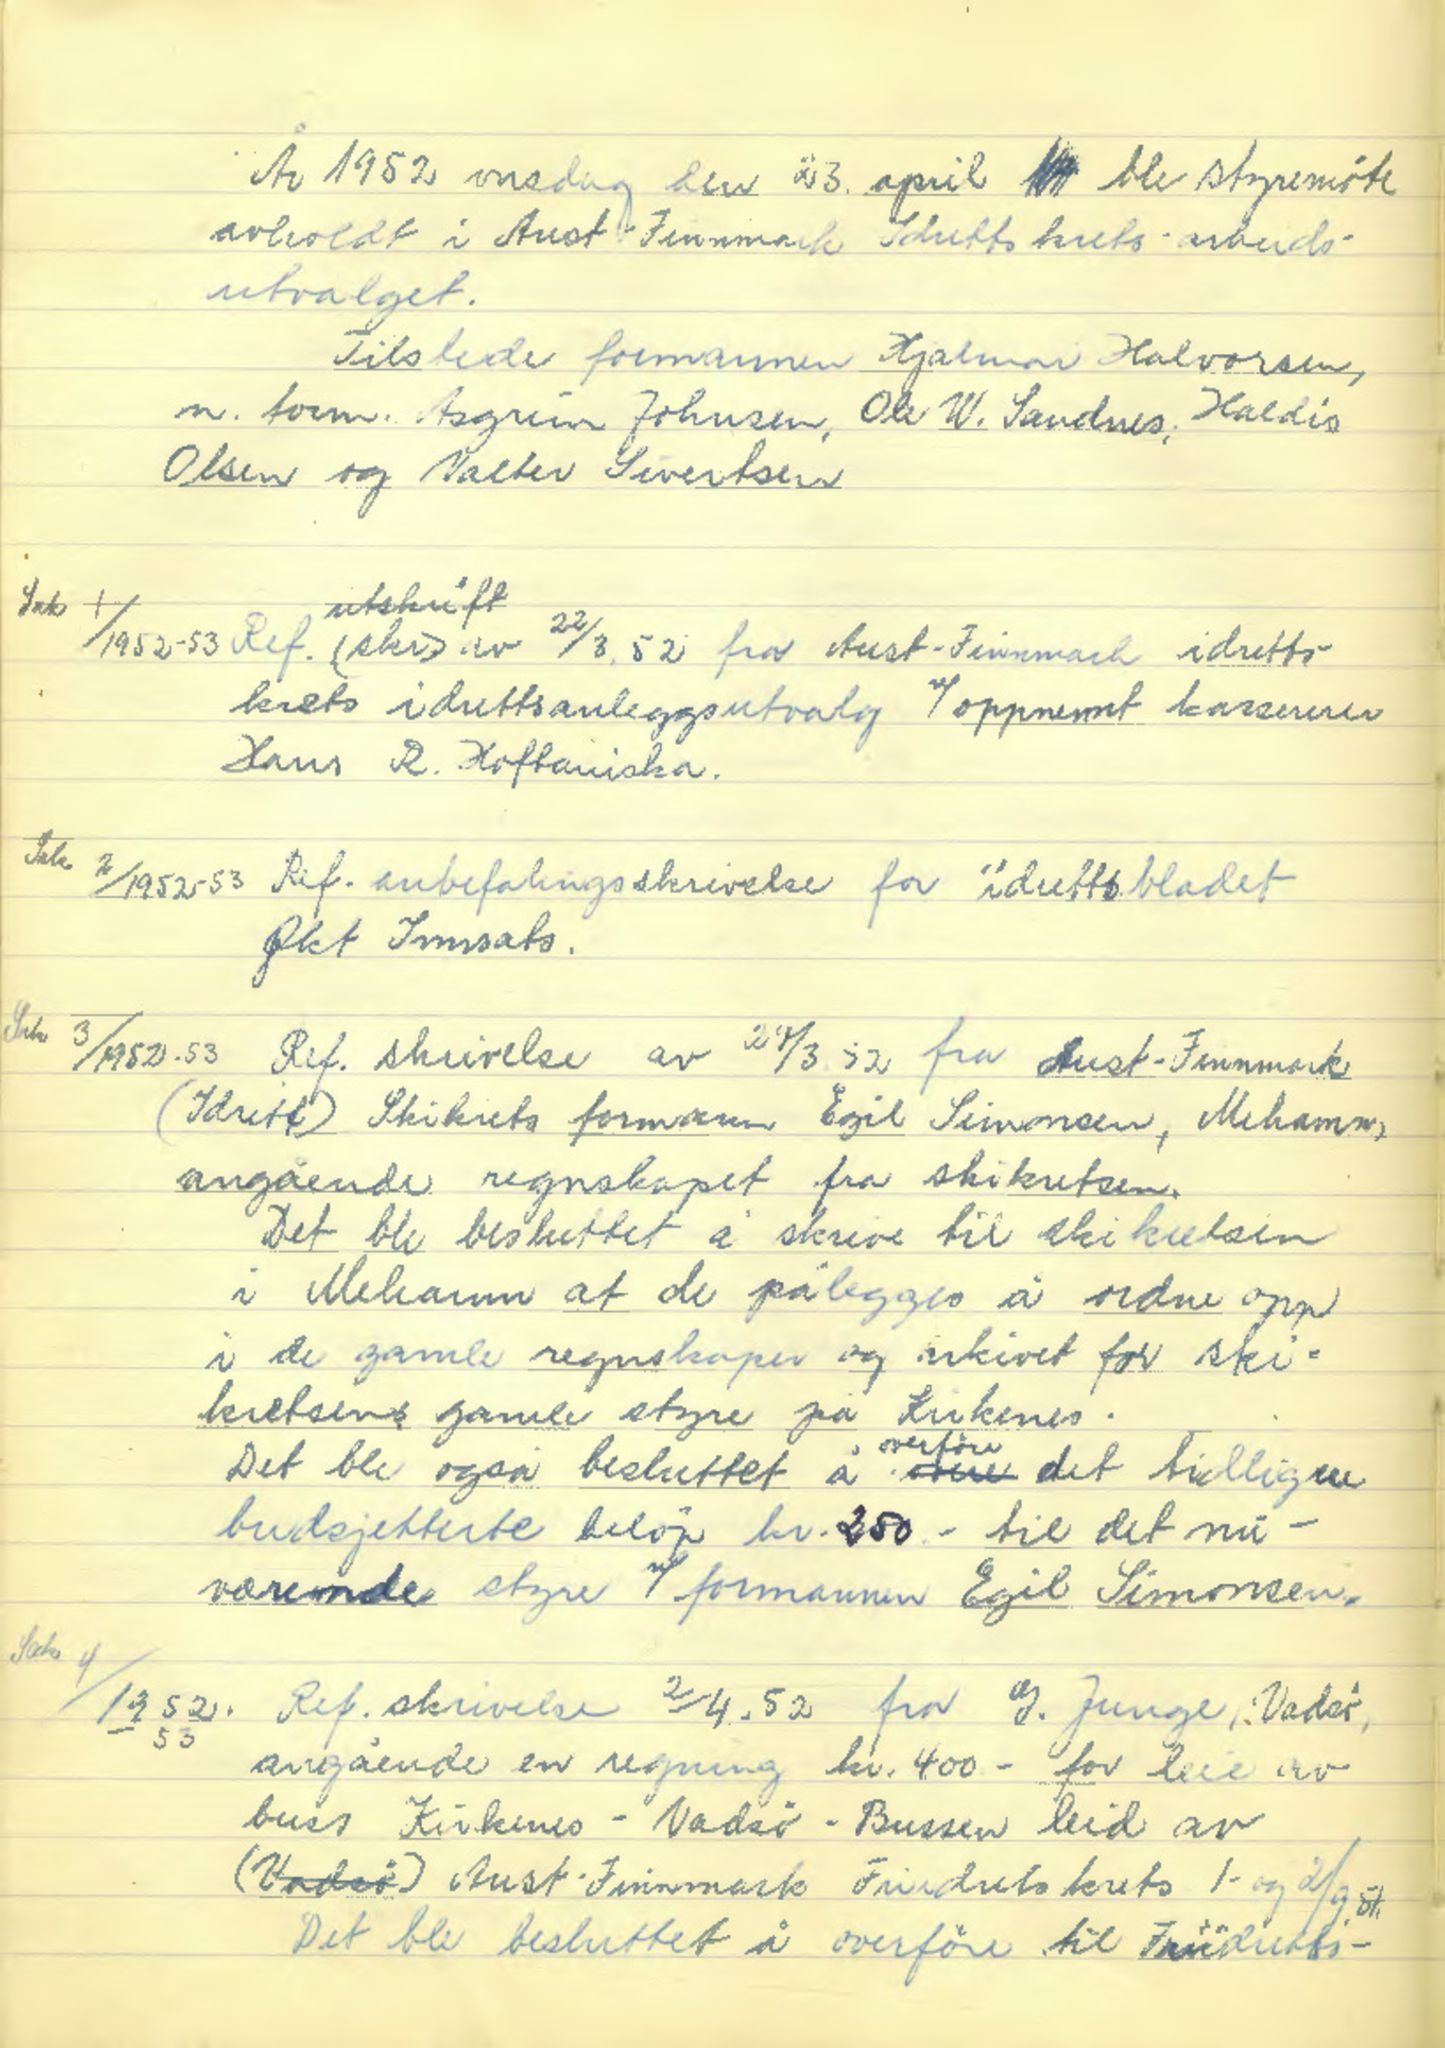 År 1952 onsdag den 23. april ble styremöte
avholdt i Aust-Finnmark Idrettskrets arbeids-
utvalget.
Tilstede formannen Hjalmar Halvorsen,
n. form. Asgrim Johnsen, Ole W. Sandnes, Haldis
Olsen og Valter Sivertsen
Sak 1/1952-53 Ref. (skr) utskrift av 22/3.52 fra Aust-Finnmark idretts
krets idrettsanleggsutvalg v/oppnemnt kasserer
Hans R.
Sak 2/1952-53 Ref. anbefalingsskrivelse for idrettsbladet
Økt Innsats.
Sak 3/1952-53 Ref. skrivelse av 24/3.52 fra Aust-Finnmark
(Idrett) Skikrets formann Egil Simonsen, Mehamn,
angående regnskapet fra skikretsen.
Det ble besluttet å skrive til skikretsen
i Mehamn at de pålegges å ordne opp
i de gamle regnskaper og arkivet for ski-
kretsens gamle styre på Kirkenes.
Det ble også besluttet å overföre det tidligere
budsjetterte belöp kr. 250.- til det nu-
værende styre v/formannen Egil Simonsen.
Sak 4/1952-53. Ref. skrivelse 2/4.52 fra J. Junge, Vadsö,
angående en regning kr. 400.- for leie av
buss Kirkenes - Vadsö - Bussen leid av
(Vadsö) Aust-Finnmark Friidretskrets 1- og 2/9.51.
Det ble besluttet å overföre til Friidretts-